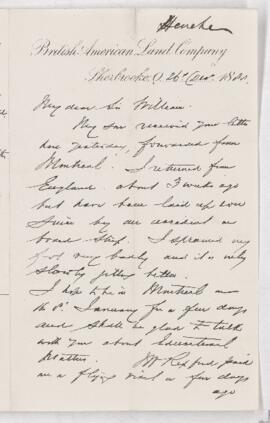 British American Land Company
Sherbrooke, Q. 26 Dec. 18
My dear Sir William
My son received your letter
here yesterday, forwarded from
Montreal. I returned from
England about 3 weeks ago
but have been laid up ever
since by an accident on
board ship. I sprained my
foot very badly and it is only
slowly getting better.
I hope to be in Montreal on
the 6th January for a few days
and shall be glad to talk
with you about Educational
Matters.
Mr Rexford paid
me a flying visit a few days
ago